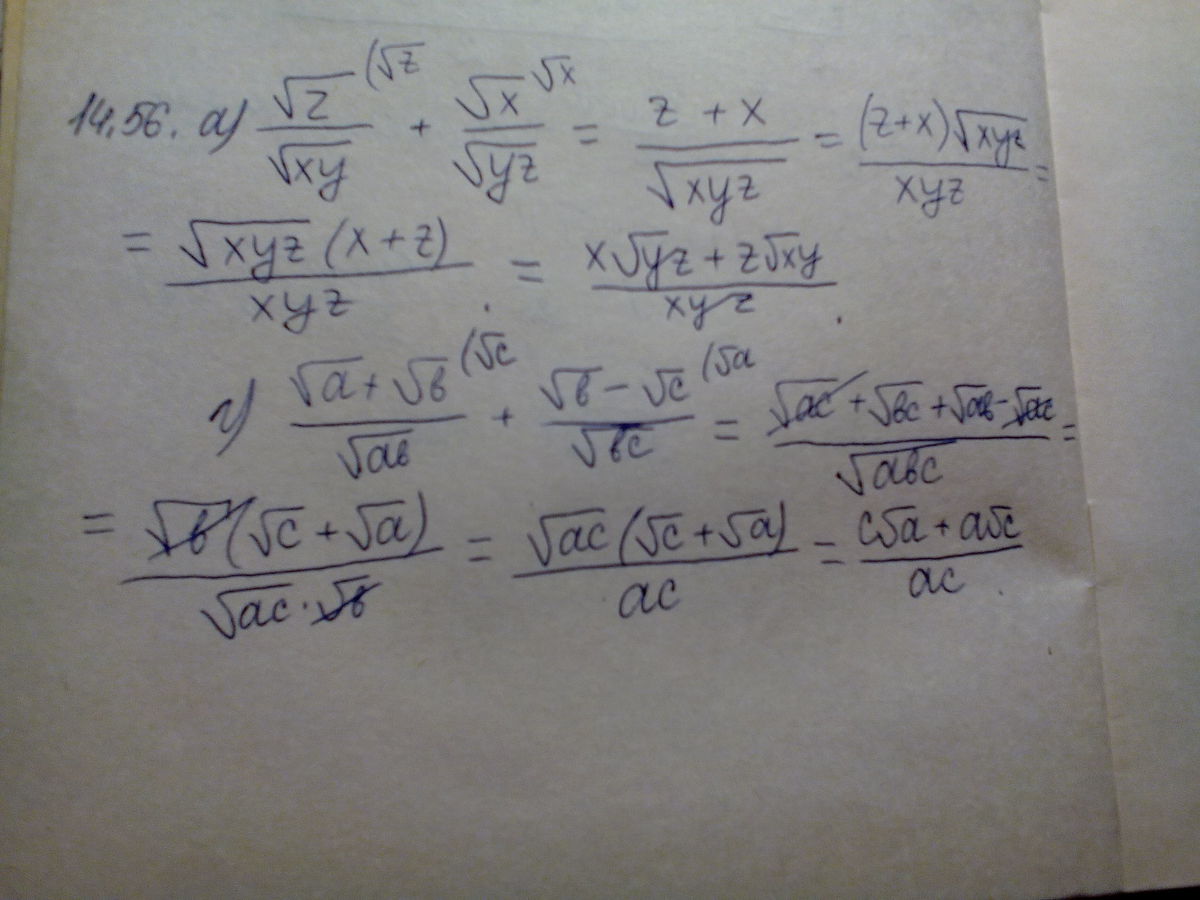 14.56. а) √z/√xy (√z + √x/√yz √x = z + x/√xyz = (z+x)√xyz/xyz =
= √xyz (x+z)/xyz = x√yz + z√xy/xyz .
г) √a + √b/√ab (√c + √b - √c/√bc (√a = √ac + √bc + √ab - √ac/√abc =
= √b (√c + √a)/√ac · √b = √ac (√c + √a)/ac = c√a + a√c/ac .